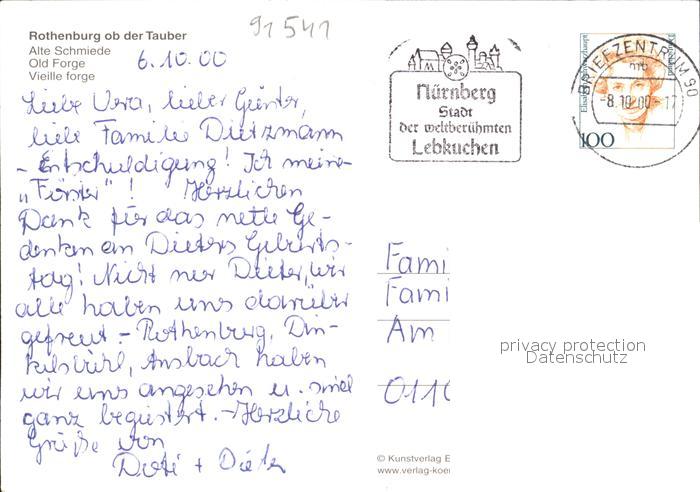 91541
Rothenburg ob der Tauber
Alte Schmiede
Old Forge
Vieille forge
6.10.00
Liebe Vera, lieber Günter,
liebe Familie Dietzmann
- Entschuldigung! Ich meine
"Förster"! Herzlichen
Dank für das nette Ge-
denken an Dieters Geburts-
tag! Nicht nur Dieter, wir
alle haben uns darüber
gefreut. - Rothenburg, Din-
kelsbühl, Ansbach haben
wir uns angesehen u. sind
ganz begeistert. - Herzliche
Grüße von
Dieter
Nürnberg
Stadt
der weltberühmten
Lebkuchen
BRIEFZENTRUM 90
mb
-8.10.00-17
100
Fami
Fami
Am
011
privacy protection
Datenschutz
© Kunstverlag E
www.verlag-koe